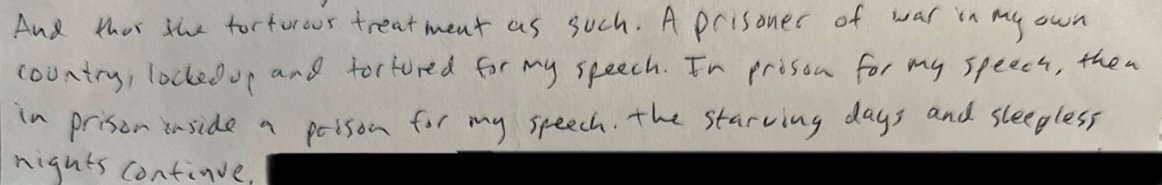 And thus the torturous treatment as such. A prisoner of war in my own
country, locked up and tortured for my speech. In prison for my speech, then
in prison inside a poison for my speech. the starving days and sleepless
nights continue.